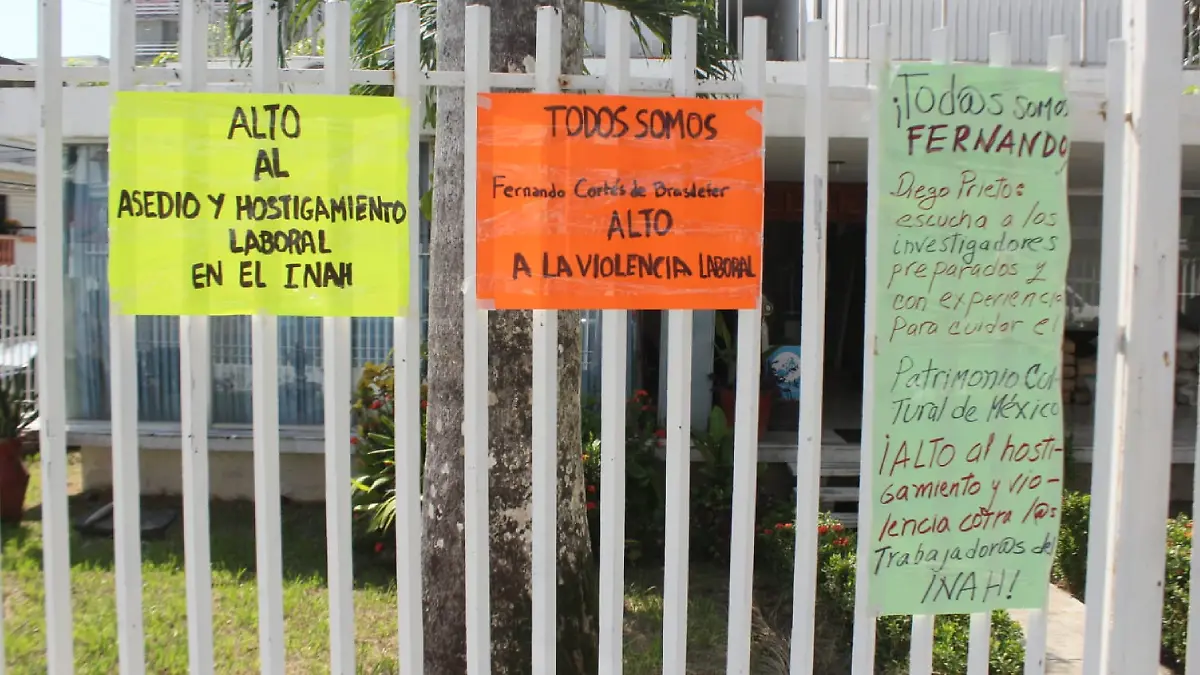 ALTO
AL
ASEDIO Y HOSTIGAMIENTO
LABORAL
EN EL INAH
TODOS SOMOS
Fernando Cortés de Brasdefer
ALTO
A LA VIOLENCIA LABORAL
¡Tod@s somos
FERNANDO
Diego Prieto:
escucha a los
investigadores
preparados y
con experiencia
para cuidar el
Patrimonio Cul-
tural de México
¡ALTO al hosti-
gamiento y vio-
lencia cotra l@s
Trabajador@s del
INAH!